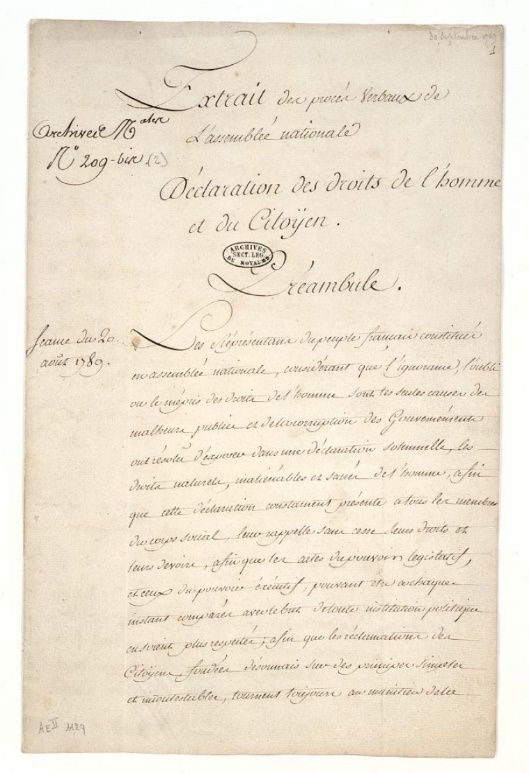 30 Septembre 1789
1
Extrait des procès verbaux de
L'assemblée nationale
Archives Nales
N° 209-bis (2)
Déclaration des droits de l'homme
et du Citoÿen.
ARCHIVES
SECT. LEG.
DU ROYAUME
Préambule.
Seance du 20.
août 1789.
Les Réprésentans du peuple francais constitués
en assemblée nationale, considérant que l'ignorance, l'oubli
ou le mépris des droits de l'homme sont les seules causes des
malheurs publics et de la corruption des Gouvernements
ont résolu d'exposer dans une déclaration solemnelle, les
droits naturels, inaliénables et sacrés de l'homme, afin
que cette déclaration constament présente a tous les membres
du corps social, leur rappelle sans cesse leurs droits et
leurs devoirs, afin que les actes du pouvoir législatif,
et ceux du pouvoir éxécutif, pouvant etre a chaque
instant comparés avec le but de toute institution politique
en soient plus respectés; afin que les réclamations des
Citoÿens, fondées désormais sur des principes simples
et incontestables, tournent toujours au maintien de la
AE II 1129